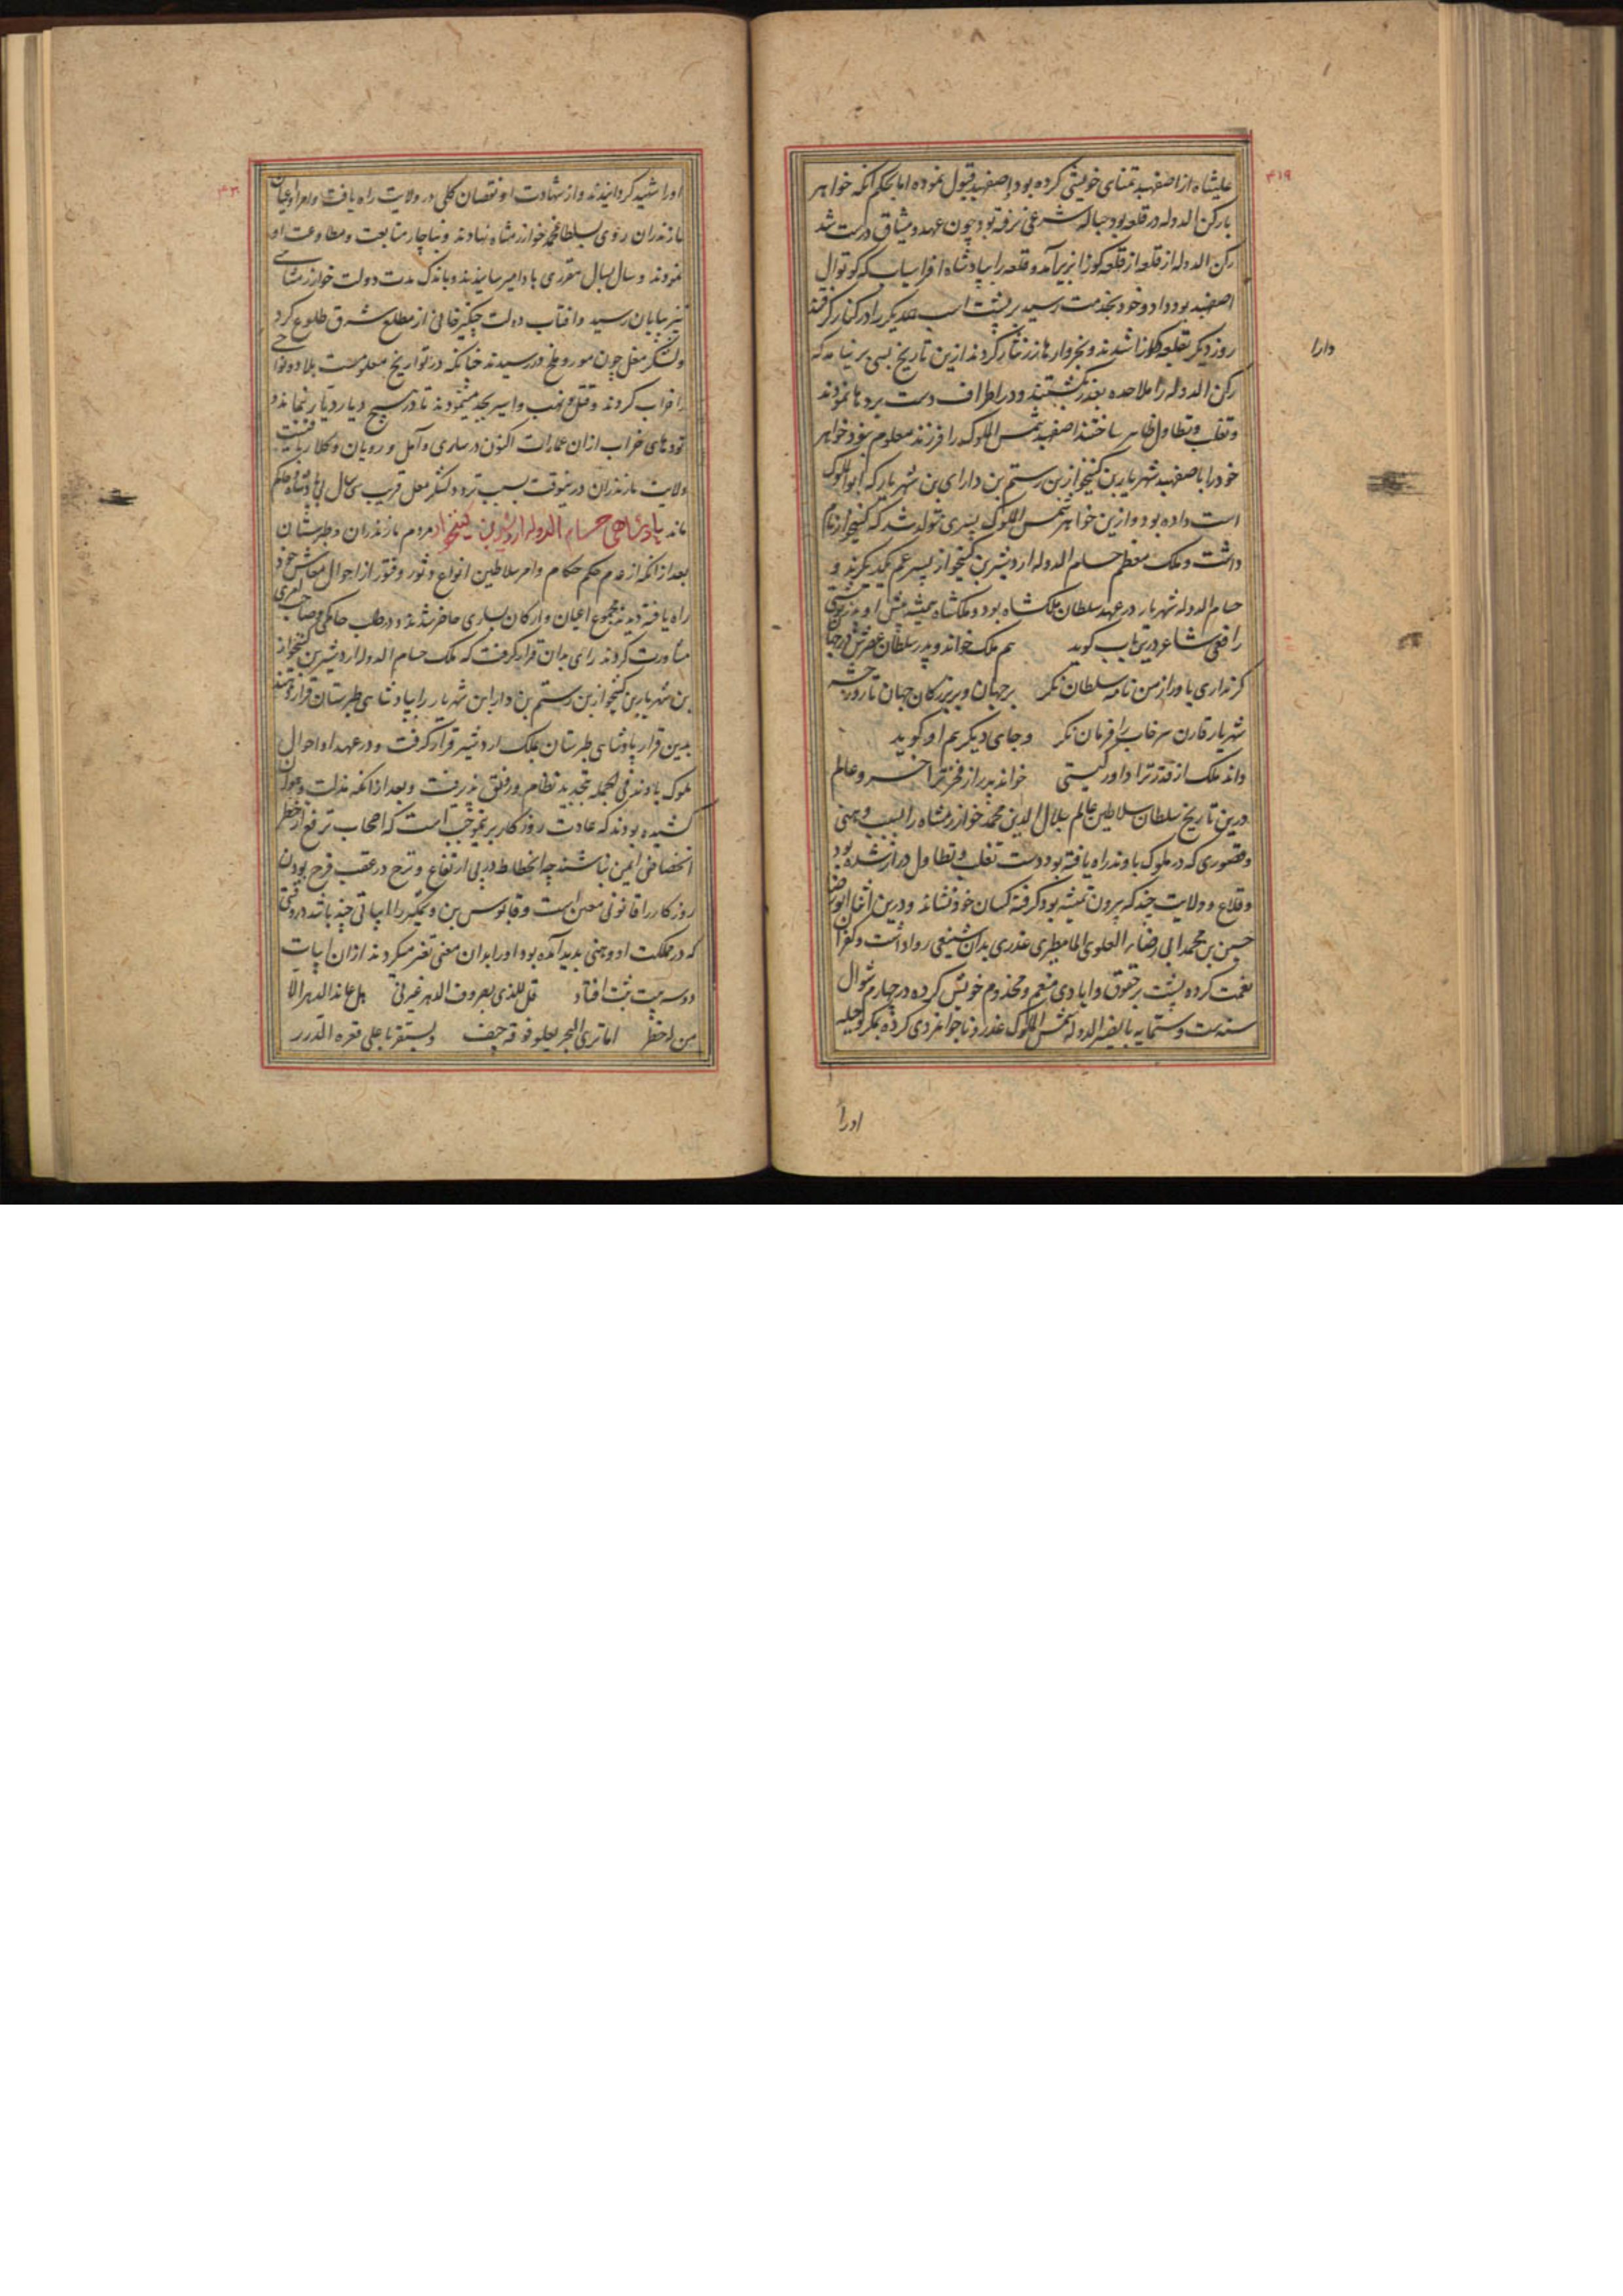 ۴۱۹
علیشاه از اصفهبد تمنای خویشی کرده بود و اصفهبد قبول نموده اما بحکم آنکه خواهر
با رکن الدوله در قلعه بود حباله شرعی نرفته بود چون عهد و میثاق درست شد
رکن الدوله از قلعه از قلعه کوزا بزیر آمد و قلعه را بپادشاه افراسیاب که کوتوال
اصفهبد بود داد و خود بخدمت رسید بر پشت اسب همدیگر را در کنار گرفتند
روز دیگر بقلعه کوزا شدند و بخروارها زر نثار کردند ازین تاریخ بسی بر نیامد که
دارا
رکن الدوله را ملاحده بغدر بکشتند و در اطراف دست بردها نمودند
و تغلب و تطاول ظاهر ساختند اصفهبد شمس الملوک را فرزند معلوم نبود خواهر
خود را با صفهبد شهریار بن کینخواز بن رستم بن دارای بن شهریار که ابوالملوک
است داده بود و ازین خواهر شمس الملوک پسری تولد شد که کینخواز نام
داشت و ملک معظم حسام الدوله اردشیر بن کینخواز پسر عم یکدیگرند و
حسام الدوله شهریار در عهد سلطان ملکشاه بود و ملکشاه همیشه پیش او
رافعی شاعر درین باب گوید هم ملک خواند و پدر سلطان عصرش در جهان
گر نداری باور از من نامه سلطان نگر بر جهان و بر بزرگان جهان تا روز حشر
شهریار قارن سرخاب را فرمان نگر و جای دیگر هم او گوید
داند ملک از قدر ترا داور گیتی خواند پدر از فخر ترا خسرو عالم
درین تاریخ سلطان سلاطین عالم جلال الدین محمد خوارزمشاه را بسبب وهنی
و قصوری که در ملوک باوند راه یافته بود دست تغلب و تطاول دراز شده بود
و قلاع و ولایت چند که بیرون تمیشه بود گرفته کسان خود نشانده و درین اثنا ابو رضا
حسین بن محمد ابی رضاء العلوی المامطیری غدری بدان شنیعی روا داشت و کفران
نعمت کرده پشت بر حقوق و ایادی منعم و مخدوم خویش کرده در چهارم شوال
سنه ست و ستمایه با نصیر الدوله شمس الملوک غدر و ناجوانمردی کرده بمکر و حیله
اورا
اورا شهید گردانیدند و از شهادت او نقصان کلی در ولایت راه یافت و امرا و اعیان
مازندران روی بسلطان محمد خوارزمشاه نهادند و بناچار متابعت و مطاوعت او
نمودند و سال بسال مقرری با دامیرسانیدند و باندک مدت دولت خوارزمشاهی
نیز بپایان رسید و آفتاب دولت چنگیزخانی از مطلع مشرق طلوع کرد
و لشکر مغل چون مور و ملخ در رسیدند چنانکه در تواریخ معلومست بلاد و نواحی
را خراب کردند و قتل و نهب و اسیر بحد مینمودند تا در هیچ دیار دیار نماند و
تودهای خراب از ان عمارات اکنون در ساری و آمل و رویان و کلار باقیست
ولایت مازندران درینوقت بسبب تردد لشکر مغل قریب سی سال بی پادشاه و حاکم
ماند پادشاهی حسام الدوله اردشیر بن کینخواز مردم مازندران و طبرستان
بعد از آنکه از عدم حکم حکام و امر سلاطین انواع و ثور و فتور از احوال معاش خود
راه یافته دیدند مجموع اعیان و ارکان بساری حاضر شدند و در طلب حاکمی و صاحب امری
مشاورت کردند رای بدان قرار گرفت که ملک حسام الدوله اردشیر بن کینخواز
بن شهریار بن کینخواز بن رستم بن دارا بن شهریار را بپادشاهی طبرستان قرار
بدین قرار پادشاهی طبرستان بملک اردشیر قرار گرفت و در عهد او احوال
ملوک باوند فی الجمله بتجدید نظام و رونق پذیرفت و بعد از آنکه مذلت و هوان
کشیده بودند که عادت روزگار برینموجب است که اصحاب ترفع از خطر
انخفاض ایمن نباشند چه انحطاط در پی ارتفاع و ترح در عقب فرح بودن
روزگار را قانونی معین است و قابوس بن وشمگیر را ابیاتی چند باشد در وقتی
که در مملکت او وهنی پدید آمده بود او را بدان معنی تعیر میکردند از آن ابیات
دو سه بیت ثبت افتاد قل للذی بصروف الدهر عیرنی هل عاند الدهر الا
من له خطر اما تری البحر یعلو فوقه جیف و یستقر باعلی قعره الدرر